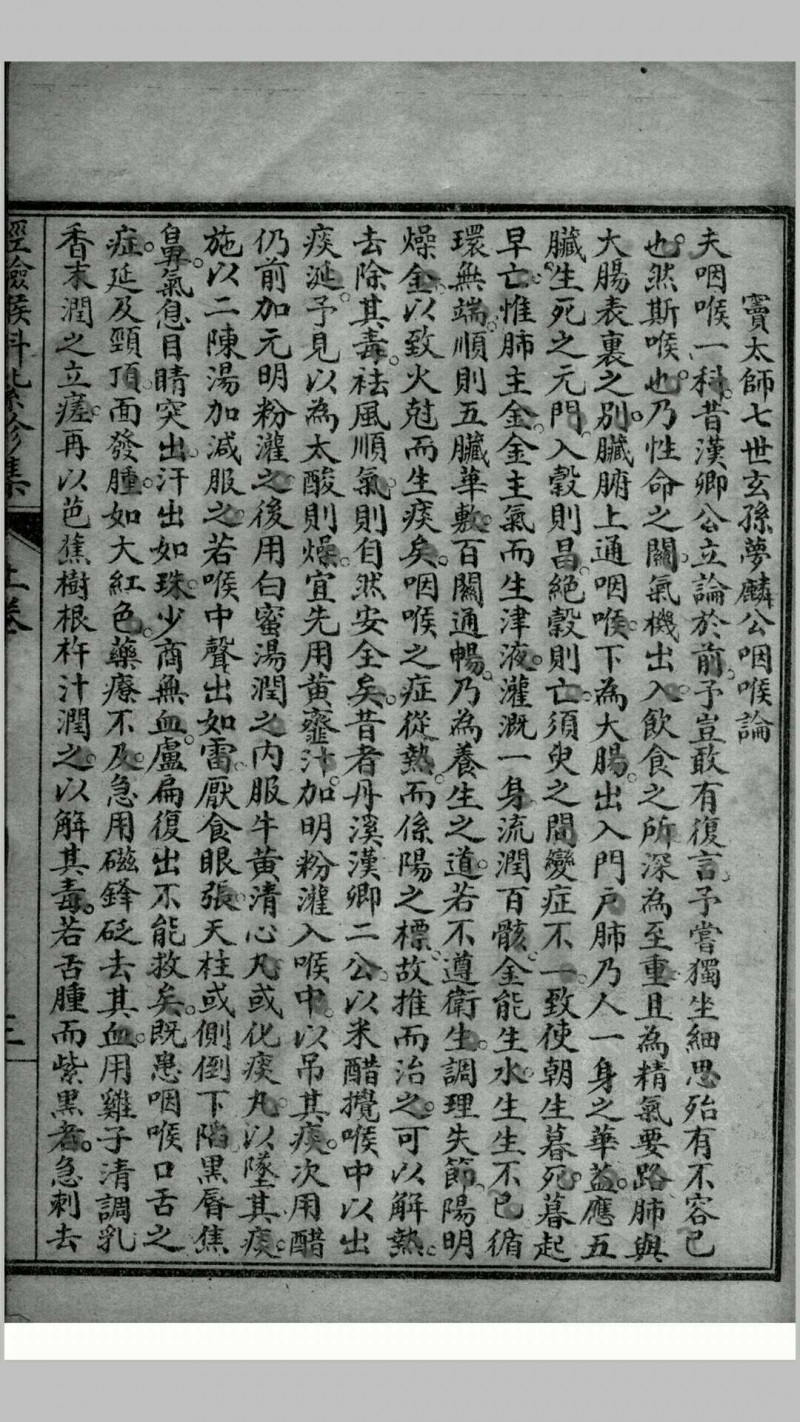 竇太師七世玄孫夢麟公咽喉論
夫咽喉一科。昔漢卿公立論於前。予豈敢有復言。予嘗獨坐細思殆有不容已
也。然斯喉也。乃性命之關。氣機出入。飲食之所深為至重且為精氣要路肺與
大腸表裏之別。臟腑上通咽喉。下為大腸。出入門戶肺乃人一身之華蓋。應五
臟。生死之元門。入穀則昌。絕穀則亡。須臾之間變症不一。致使朝生暮死。暮起
早亡。惟肺主金。金主氣而生津液。灌溉一身流潤百骸。金能生水。生生不已循
環無端。順則五臟華敷。百關通暢。乃為養生之道。若不遵衛生。調理失節。陽明
燥金。以致火尅而生痰矣。咽喉之症從熱。而係陽之標。故推而治之。可以解熱。
去除其毒。祛風順氣。則自然安全矣。昔者丹溪漢卿二公。以米醋攪喉中以出
痰涎。予見以為太酸則燥。宜先用黃虀汁。加明粉灌入喉中。以吊其痰。次用醋
仍前加元明粉灌之。後用白蜜湯潤之。內服牛黃清心丸。或化痰丸。以墜其痰。
施以二陳湯加減服之。若喉中聲出如雷。厭食眼張。天柱或側倒下陷。黑唇焦
鼻。氣急目睛突出。汗出如珠。少商無血。盧扁復出不能救矣。既患咽喉口舌之
症。延及頸項。面發腫。如大紅色。藥療不及。急用磁鋒砭去其血。用雞子清調乳
香末潤之立瘥。再以芭蕉樹根杵汁潤之。以解其毒。若舌腫而紫黑者。急刺去
經驗喉科紫珍集 上卷 三